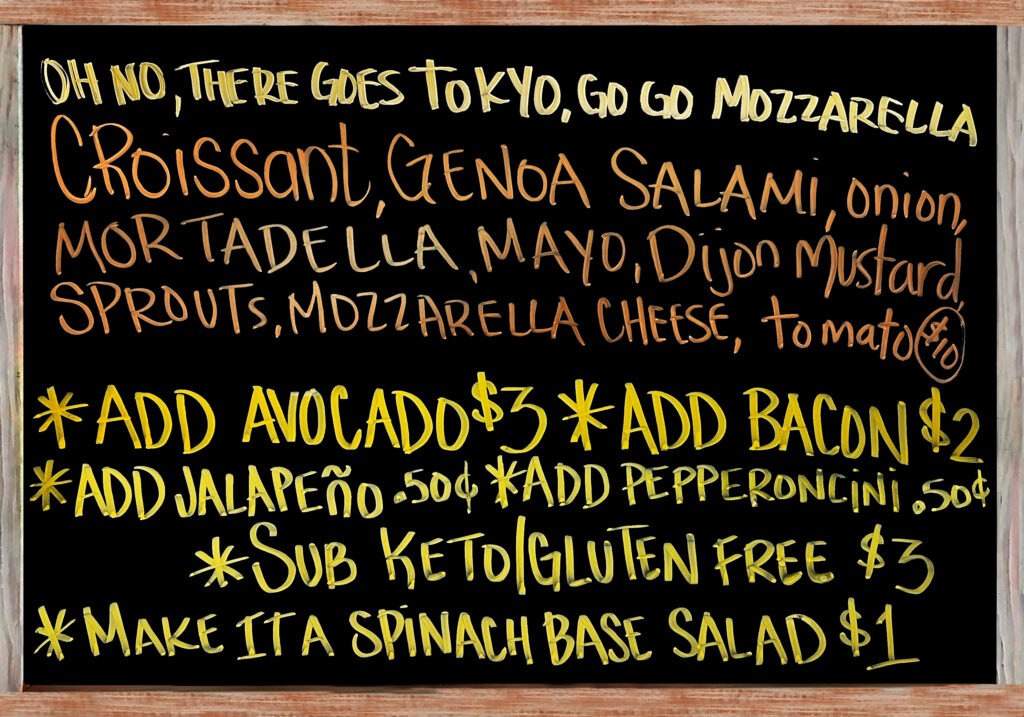 OH NO, THERE GOES TOKYO, GO GO MOZZARELLA
CROissant, GENOA SALAMi, onion,
MORTADELLA, MAYO, Dijon Mustard,
SPROUTs, MOZZARELLA CHEESE, tomato $10
*ADD AVOCADO $3 *ADD BACON $2
*ADD JALAPEñO .50¢ *ADD PEPPERONCiNi .50¢
*SUB KETO/GLUTEN FREE $3
*MAKE IT A SPiNACH BASE SALAD $1